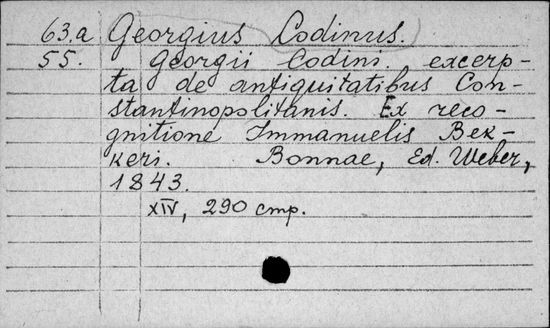 63.a Georgius Codinus.
55. Georgii Codini excerp-
ta de antiquitatibus Con-
stantinopolitanis. Ex reco-
gnitione Immanuelis Bek-
keri. Bonnae, Ed. Weber,
1843.
XIV, 290 стр.